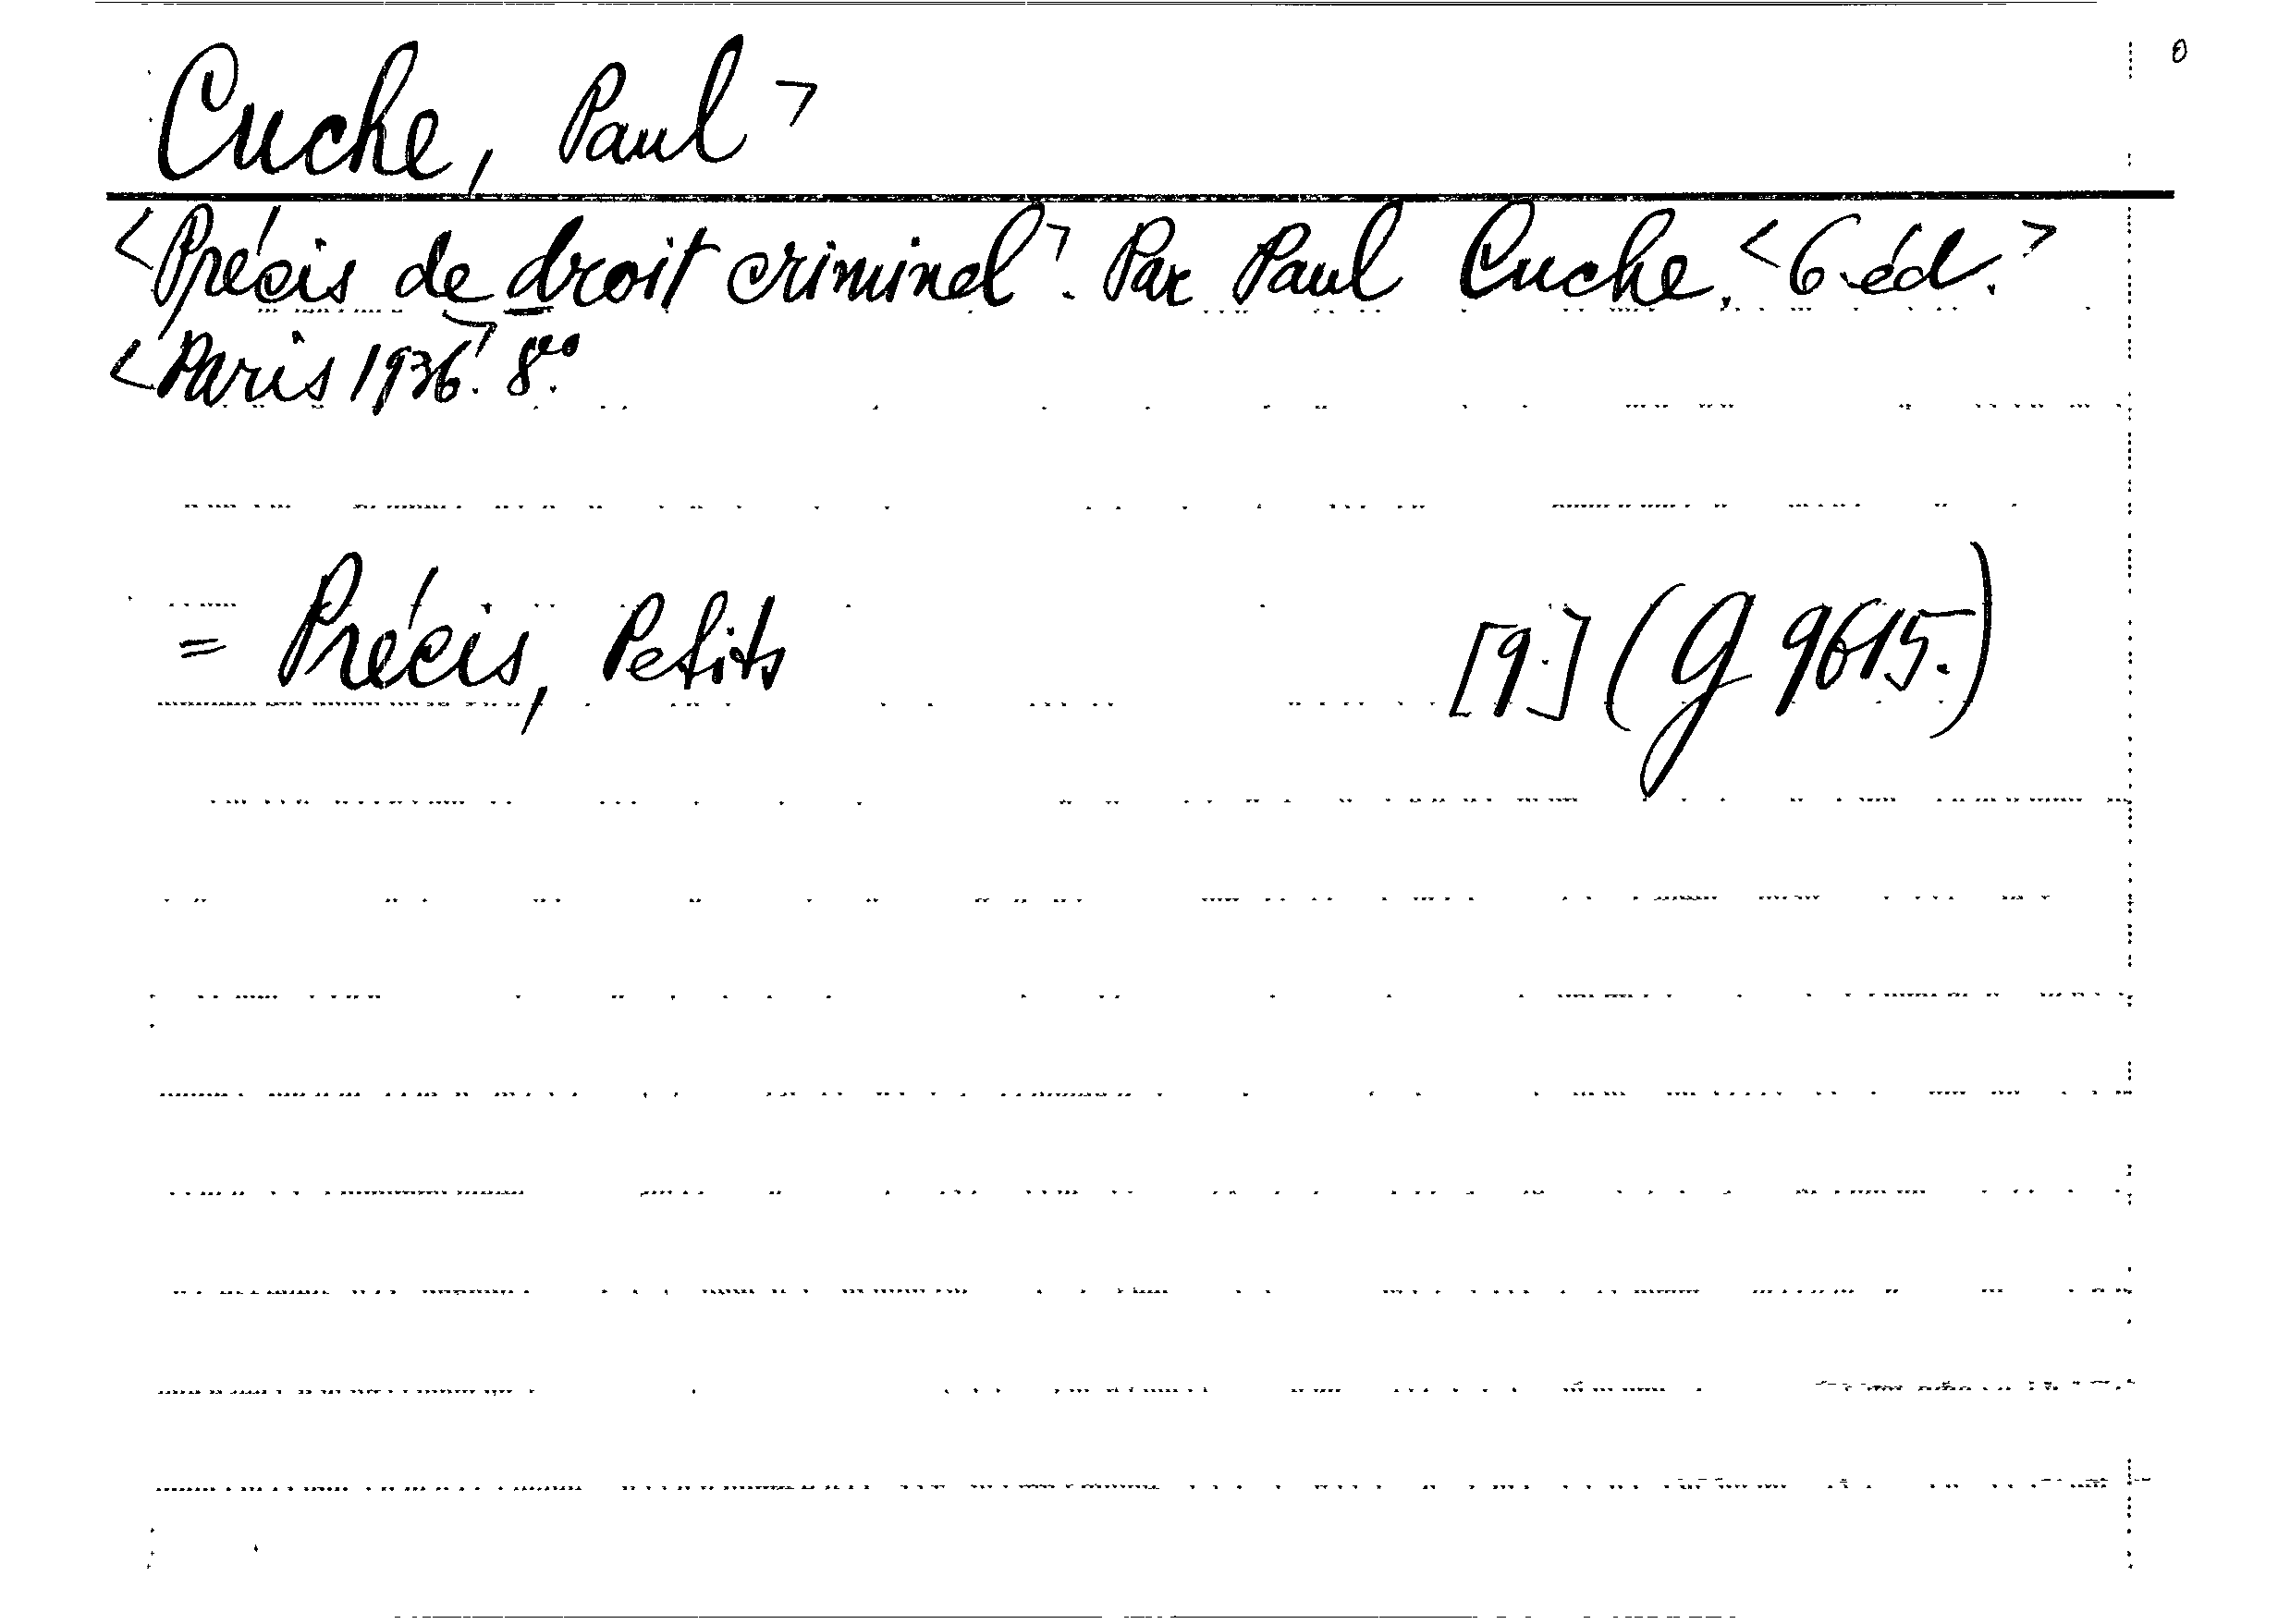 0
Cuche, Paul>
<Précis de droit criminel>. Par Paul Cuche. <6. éd.>
<Paris 1936>. 8vo.
= Précis, Petits [9.] (G 9615.)